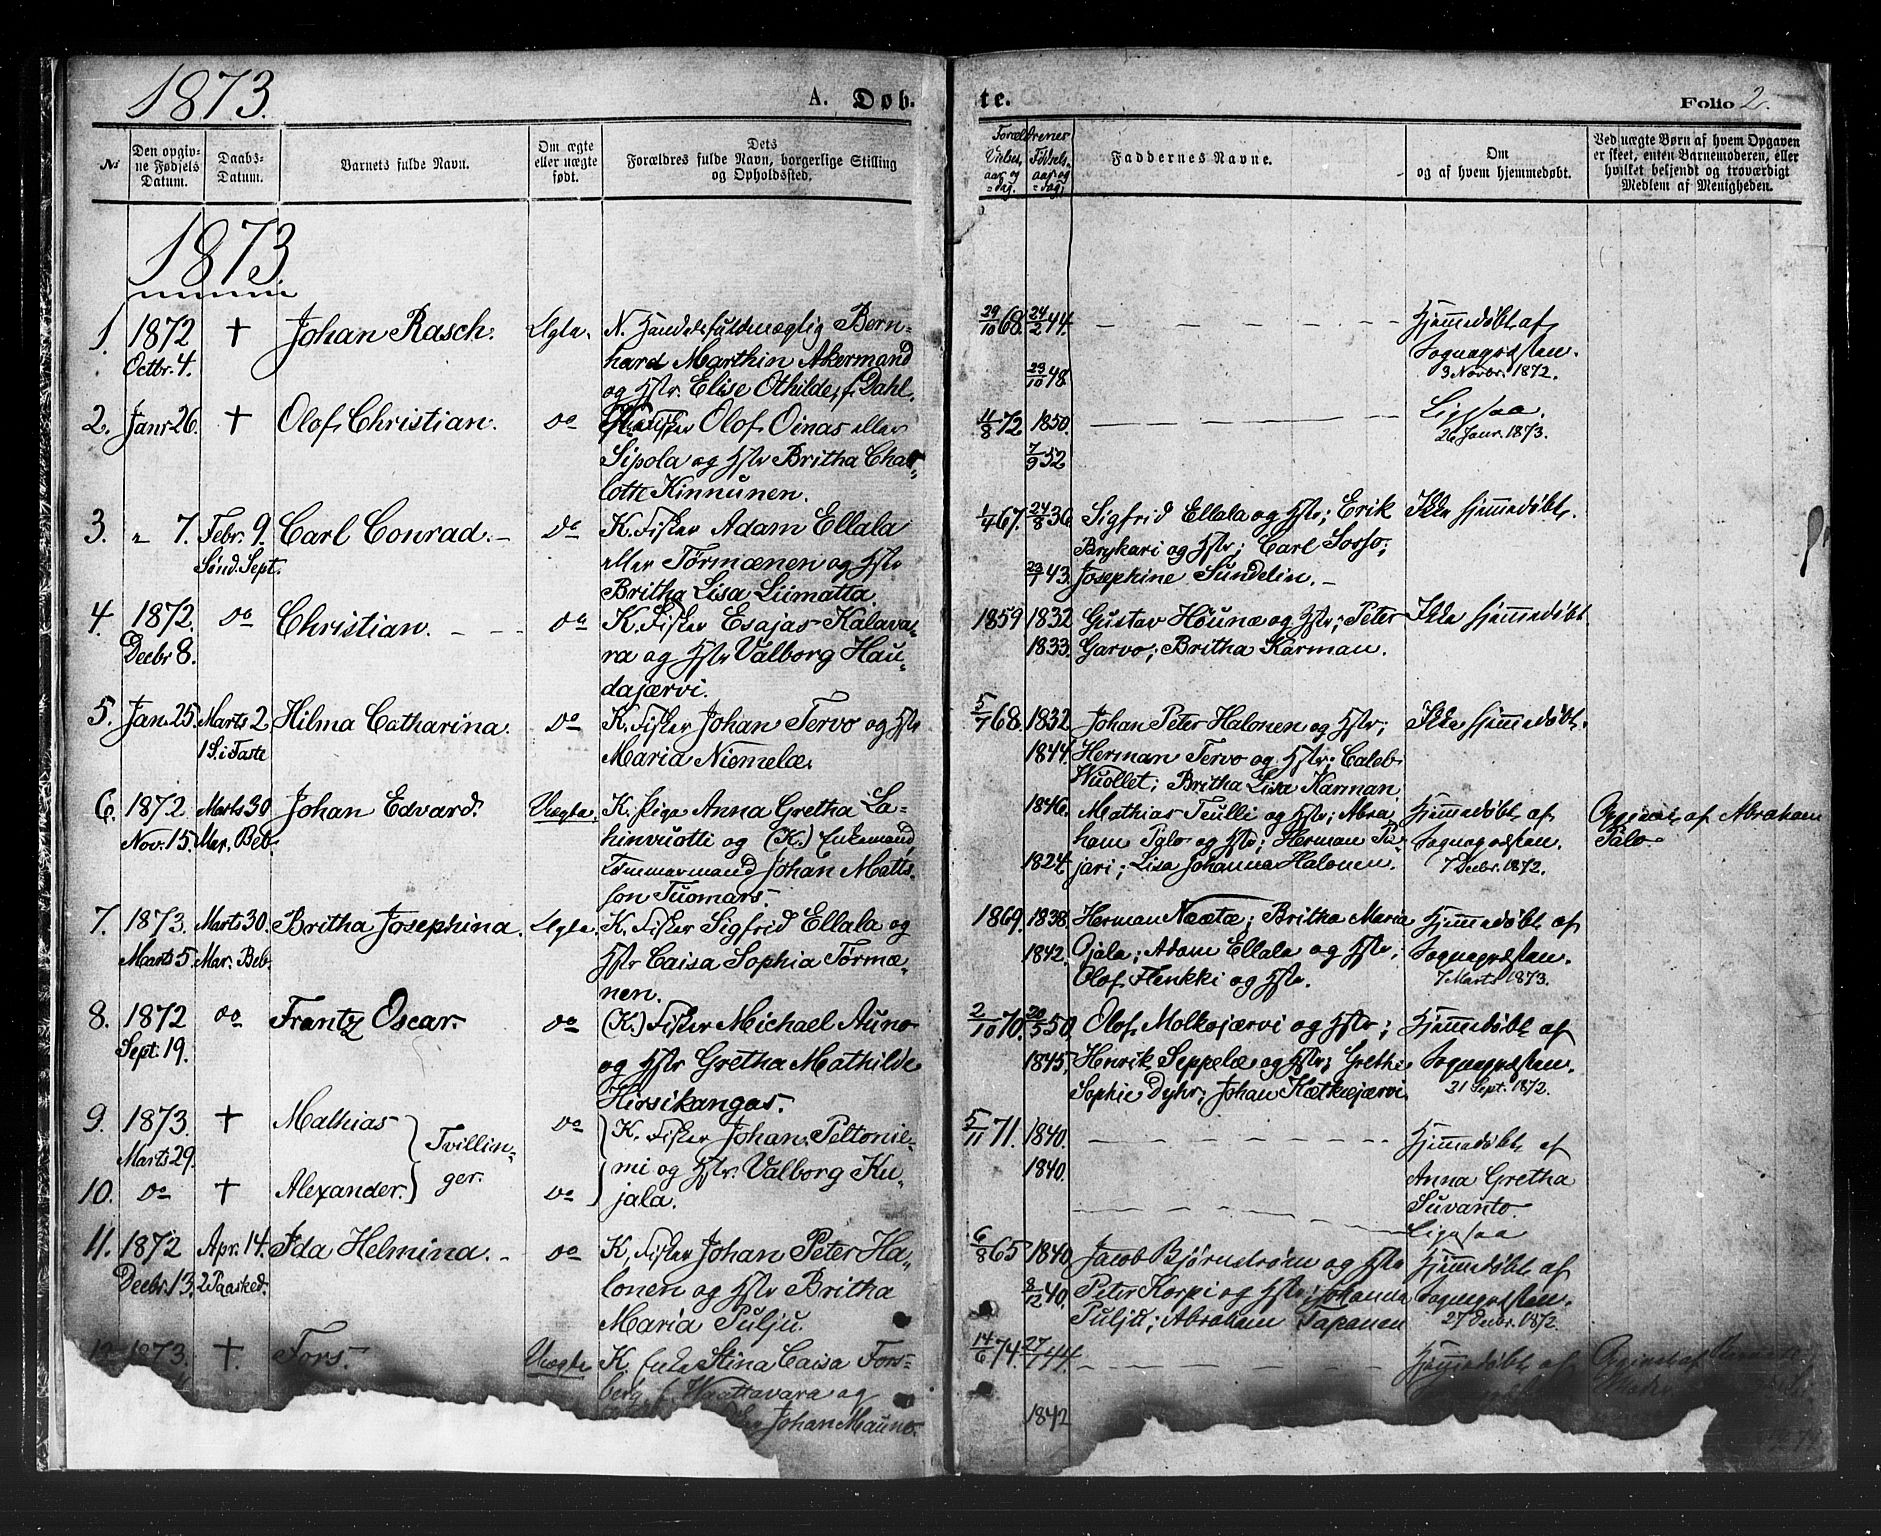 1873.
A. Døb-
te.
Folio 2.
№
Den opgiv-
ne Fødsels
Datum.
Daabs-
Datum.
Barnets fulde Navn.
Om ægte
eller uægte
født.
Dets
Forældres fulde Navn, borgerlige Stilling
og Opholdssted.
Forældrenes
Vielses
aar og
-dag.
Fødsels
aar og
-dag.
Faddernes Navne.
Om
og af hvem hjemmedøbt.
Ved uægte Børn af hvem Opgaven
er skeet, enten Barnemoderen, eller
hvilket bekjendt og troværdigt
Medlem af Menigheden.
1873.
1. 1872 † Johan Rasch. Ægte. N. Handelsfuldmægtig Bern-
Octbr. 4. hard Marthin Akermand
og Hstr. Elise Othilde, f. Dahl.
29/10 68. 24/2 44. Hjemmedøbt af
Sognepræsten.
29/10 48. 3 Novbr. 1872.
2. Janr 26. † Olof Christian. do Fisker Olof Oinas eller
Sipola og Hstr Britha Char-
lotte Kinnunen.
11/8 72 1850. Ligesaa.
26 Janr. 1873.
7/9 52
3. " 7. Febr. 9. Carl Conrad. do K. Fisker Adam Ellala
Sønd. Sept. eller Törmænen og Hstr
Britha Lisa Liimatta.
1/4 67. 24/8 36. Sigfrid Ellala og Hstr; Erik Ikke hjemmedøbt.
Brykari og Hstr; Carl Sosso;
23/1 43. Josephine Sundelin.
4. 1872. do Christian. do K. Fisker Esajas Kalava-
Decbr 8. ra og Hstr Valborg Hau-
dajærvi.
1859 1832 Gustav Hounæ og Hstr; Peter Ikke hjemmedøbt
1833. Garvo; Britha Karman.
5. Jan. 25. Marts 2 Hilma Catharina. do K. Fisker Johan Tervo og Hstr
1 S. i Faste Maria Niemelæ.
5/7 68. 1832. Johan Peter Halonen og Hstr; Ikke hjemmedøbt.
1844. Herman Tervo og Hstr; Caleb
Wuollet; Britha Lisa Karman
6. 1872 Marts 30 Johan Edvard. Uægte. K. Pige Anna Gretha La-
Nov. 15. Mar. Beb. hinvuotti og (K.) Enkemand,
Tømmermand Johan Matts-
son Tuomars.
1846. Mathias Teulli og Hstr; Abra Hjemmedøbt af Opgivet af Abraham
ham Palo og Hstr; Herman Pu- Sognepræsten. Palo.
1824. jari; Lisa Johanna Halonen. 7 Decbr. 1872.
7. 1873. Marts 30. Britha Josephina. Ægte. K. Fisker Sigfrid Ellala og
Marts 5. Mar. Beb. Hstr Caisa Sophia Törmæ-
nen.
1869. 1838. Herman Næætæ; Britha Maria Hjemmedøbt af
1842. Ojala; Adam Ellala og Hstr; Sognepræsten.
Olof Flenkki og Hstr. 7 Marts 1873.
8. 1872 do Frantz Oscar. do (K.) Fisker Michael Auno
Sept. 19. og Hstr Gretha Mathilde
Hirsikangas.
2/10 70. 20/5 50. Olof Molkojærvi og Hstr; Hjemmedøbt af
1845. Henrik Seppelæ og Hstr; Grethe Sognepræsten.
Sophie Dyhr; Johan Kætkæjærvi. 21 Sept. 1872.
9. 1873. † Mathias do K. Fisker Johan Peltonie-
Marts 29. Tvillin- mi og Hstr. Valborg Ku-
10. do † Alexander. ger. do jala.
5/11 71. 1840. Hjemmedøbt af
1840. Anna Gretha
Suvanto.
Ligesaa
11. 1872 Apr. 14. Ida Helmina. do K. Fisker Johan Peter Ha-
Decbr. 13. 2 Paasked. lonen og Hstr Britha
Maria Pulju.
6/8 65 1840. Jacob Bjørnstrøm og Hstr Hjemmedøbt af
8/12 40. Peter Korpi og Hstr; Johanna Sognepræsten.
Pulju; Abraham Tapanen 27 Decbr. 1872.
12. 1873. † Fors. Uægte K. Enke Stina Caisa Fors-
berg f. Waattavara og
Johan Mauno.
14/6 74. 27/7 44. Hjemmedøbt af Opgivet af
1842